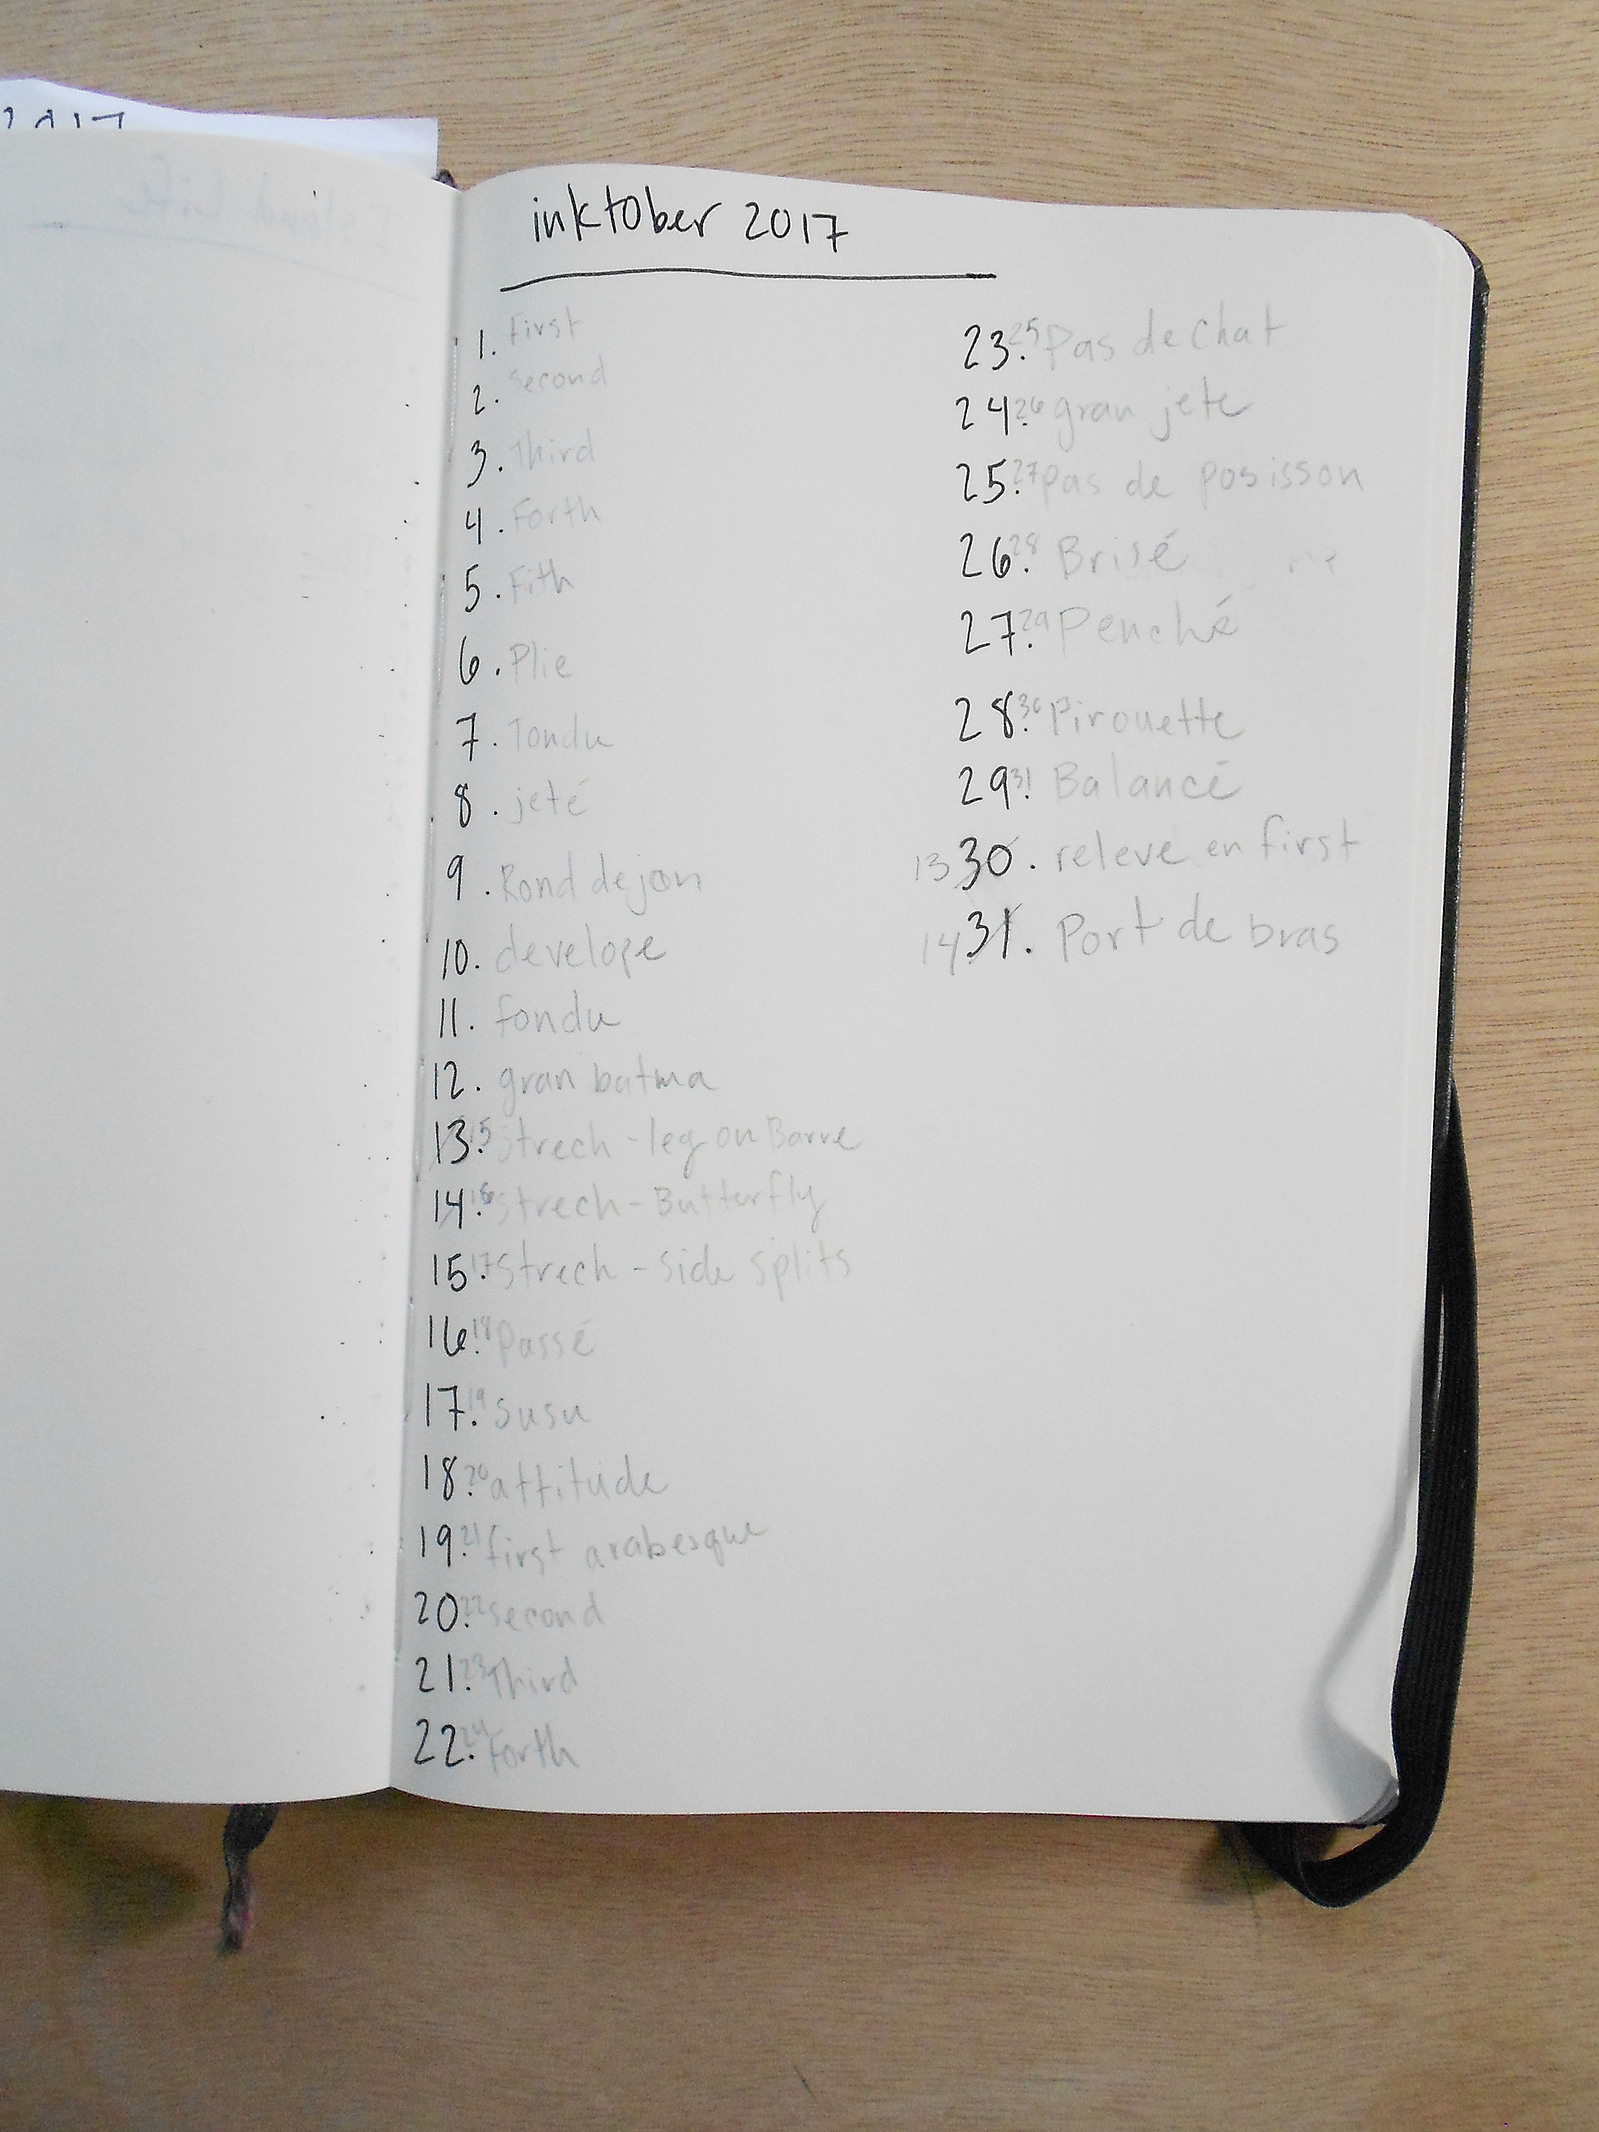 2017
Island Life
inktober 2017
1. First
2. Second
3. Third
4. Forth
5. Fith
6. Plie
7. Tondu
8. jeté
9. Rond de jon
10. develope
11. fondu
12. gran batma
13. 15 Strech - leg on Barre
14. 16 Strech - Butterfly
15. 17 Strech - side splits
16. 18 Passé
17. 19 Susu
18. 20 attitude
19. 21 first arabesque
20. 22 second
21. 23 Third
22. 24 Forth
23. 25 Pas de Chat
24. 26 gran jete
25. 27 pas de posisson
26. 28 Brisé
27. 29 Penché
28. 30 Pirouette
29. 31 Balancé
13 30. releve en first
14 31. Port de bras